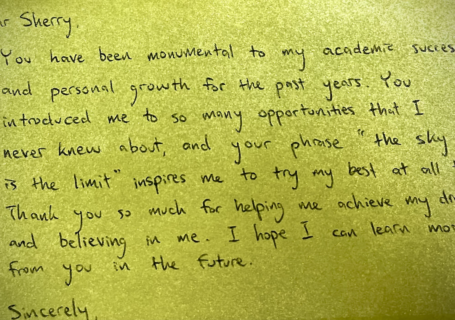 r Sherry,
You have been monumental to my academic succes
and personal growth for the past years. You
introduced me to so many opportunities that I
never knew about, and your phrase "the sky
is the limit" inspires me to try my best at all
Thank you so much for helping me achieve my dr
and believing in me. I hope I can learn mo
from you in the future.
Sincerely,